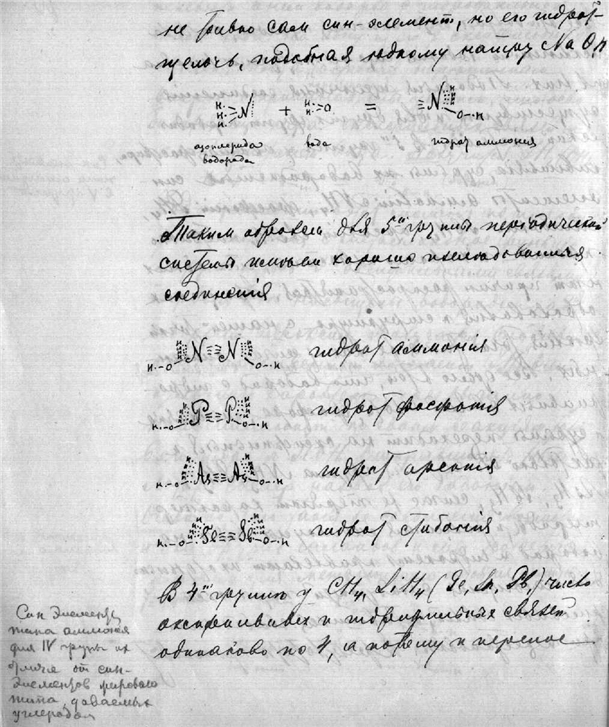 не только син-элемент, но его гидрат-
щелочь, подобная едкому натру NaOH
H H H N + H H O = N O-H
азохлорида
водорода
вода
гидрат аммония
Таким образом для 5ой группы периодической
системы имеем хорошо исследованныя
соединенія
H-O N N O-H гидрат аммонія
H-O P P O-H гидрат фосфонія
H-O As As O-H гидрат арсонія
H-O Sb Sb O-H гидрат стибонія
В 4ой группе у CH4, SiH4 (Ge, Sn, Pb,) число
и гидрильных связей
одинаково по 4, а потому и перенос
Син Элементы
типа аммония
для IV группы их
отличие от син-
Элементов мирового
типа, даваемых
углеродом